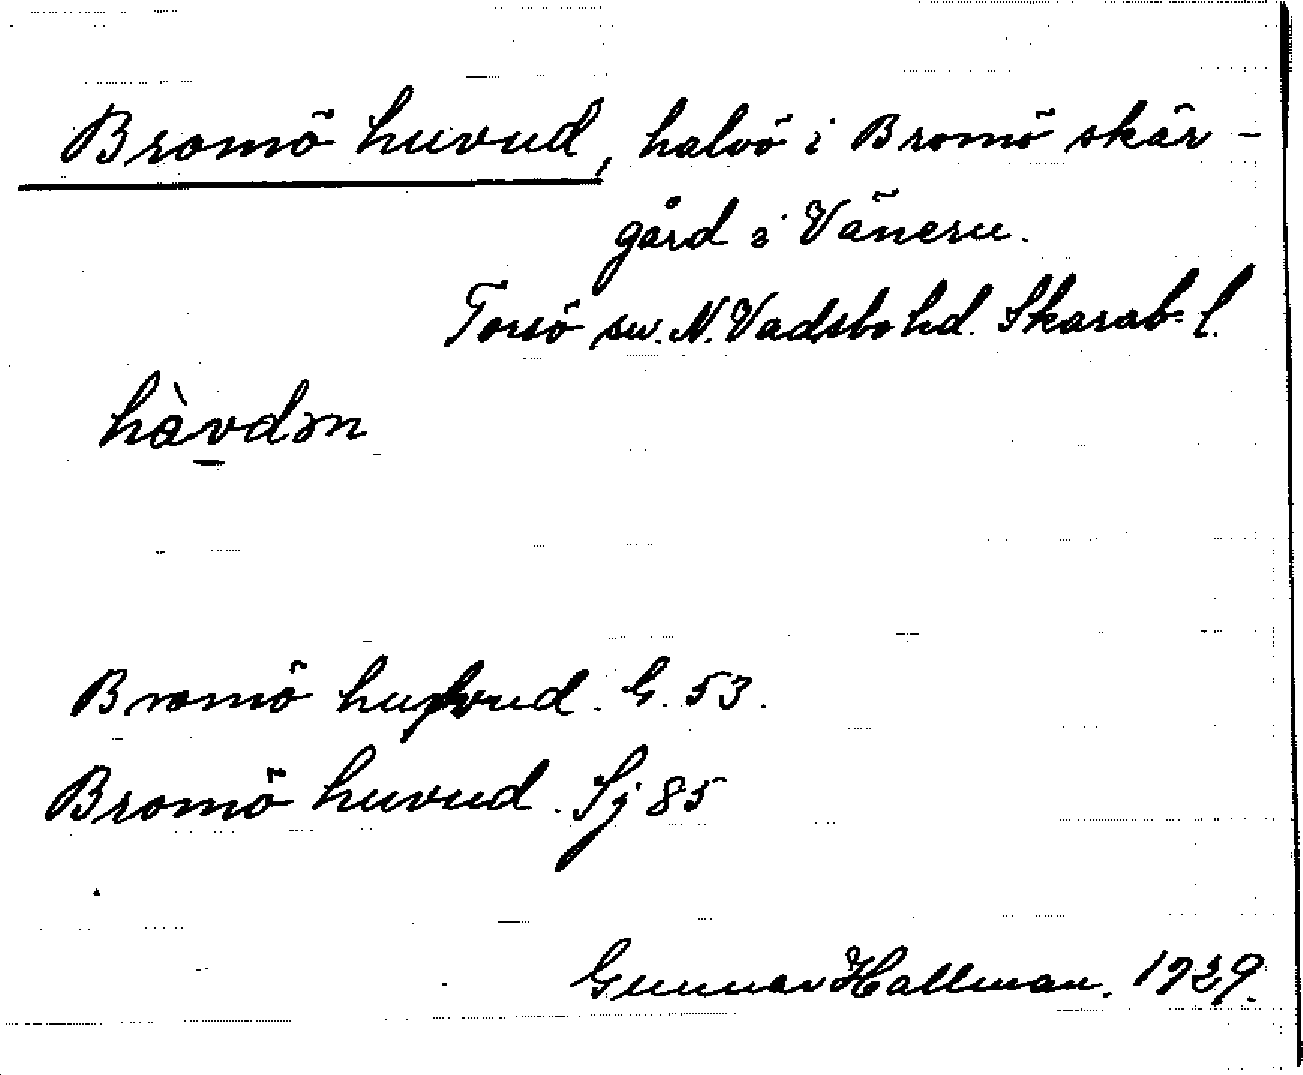 Bromö huvud, halvö i Bromö skär-
gård i Vänern.
Torsö sn. N. Vadsbo hd. Skarab. l.
hàvdən
Bromö hufvud. G. 53.
Bromö huvud. Sj 85
Gunnar Hallman. 1929.